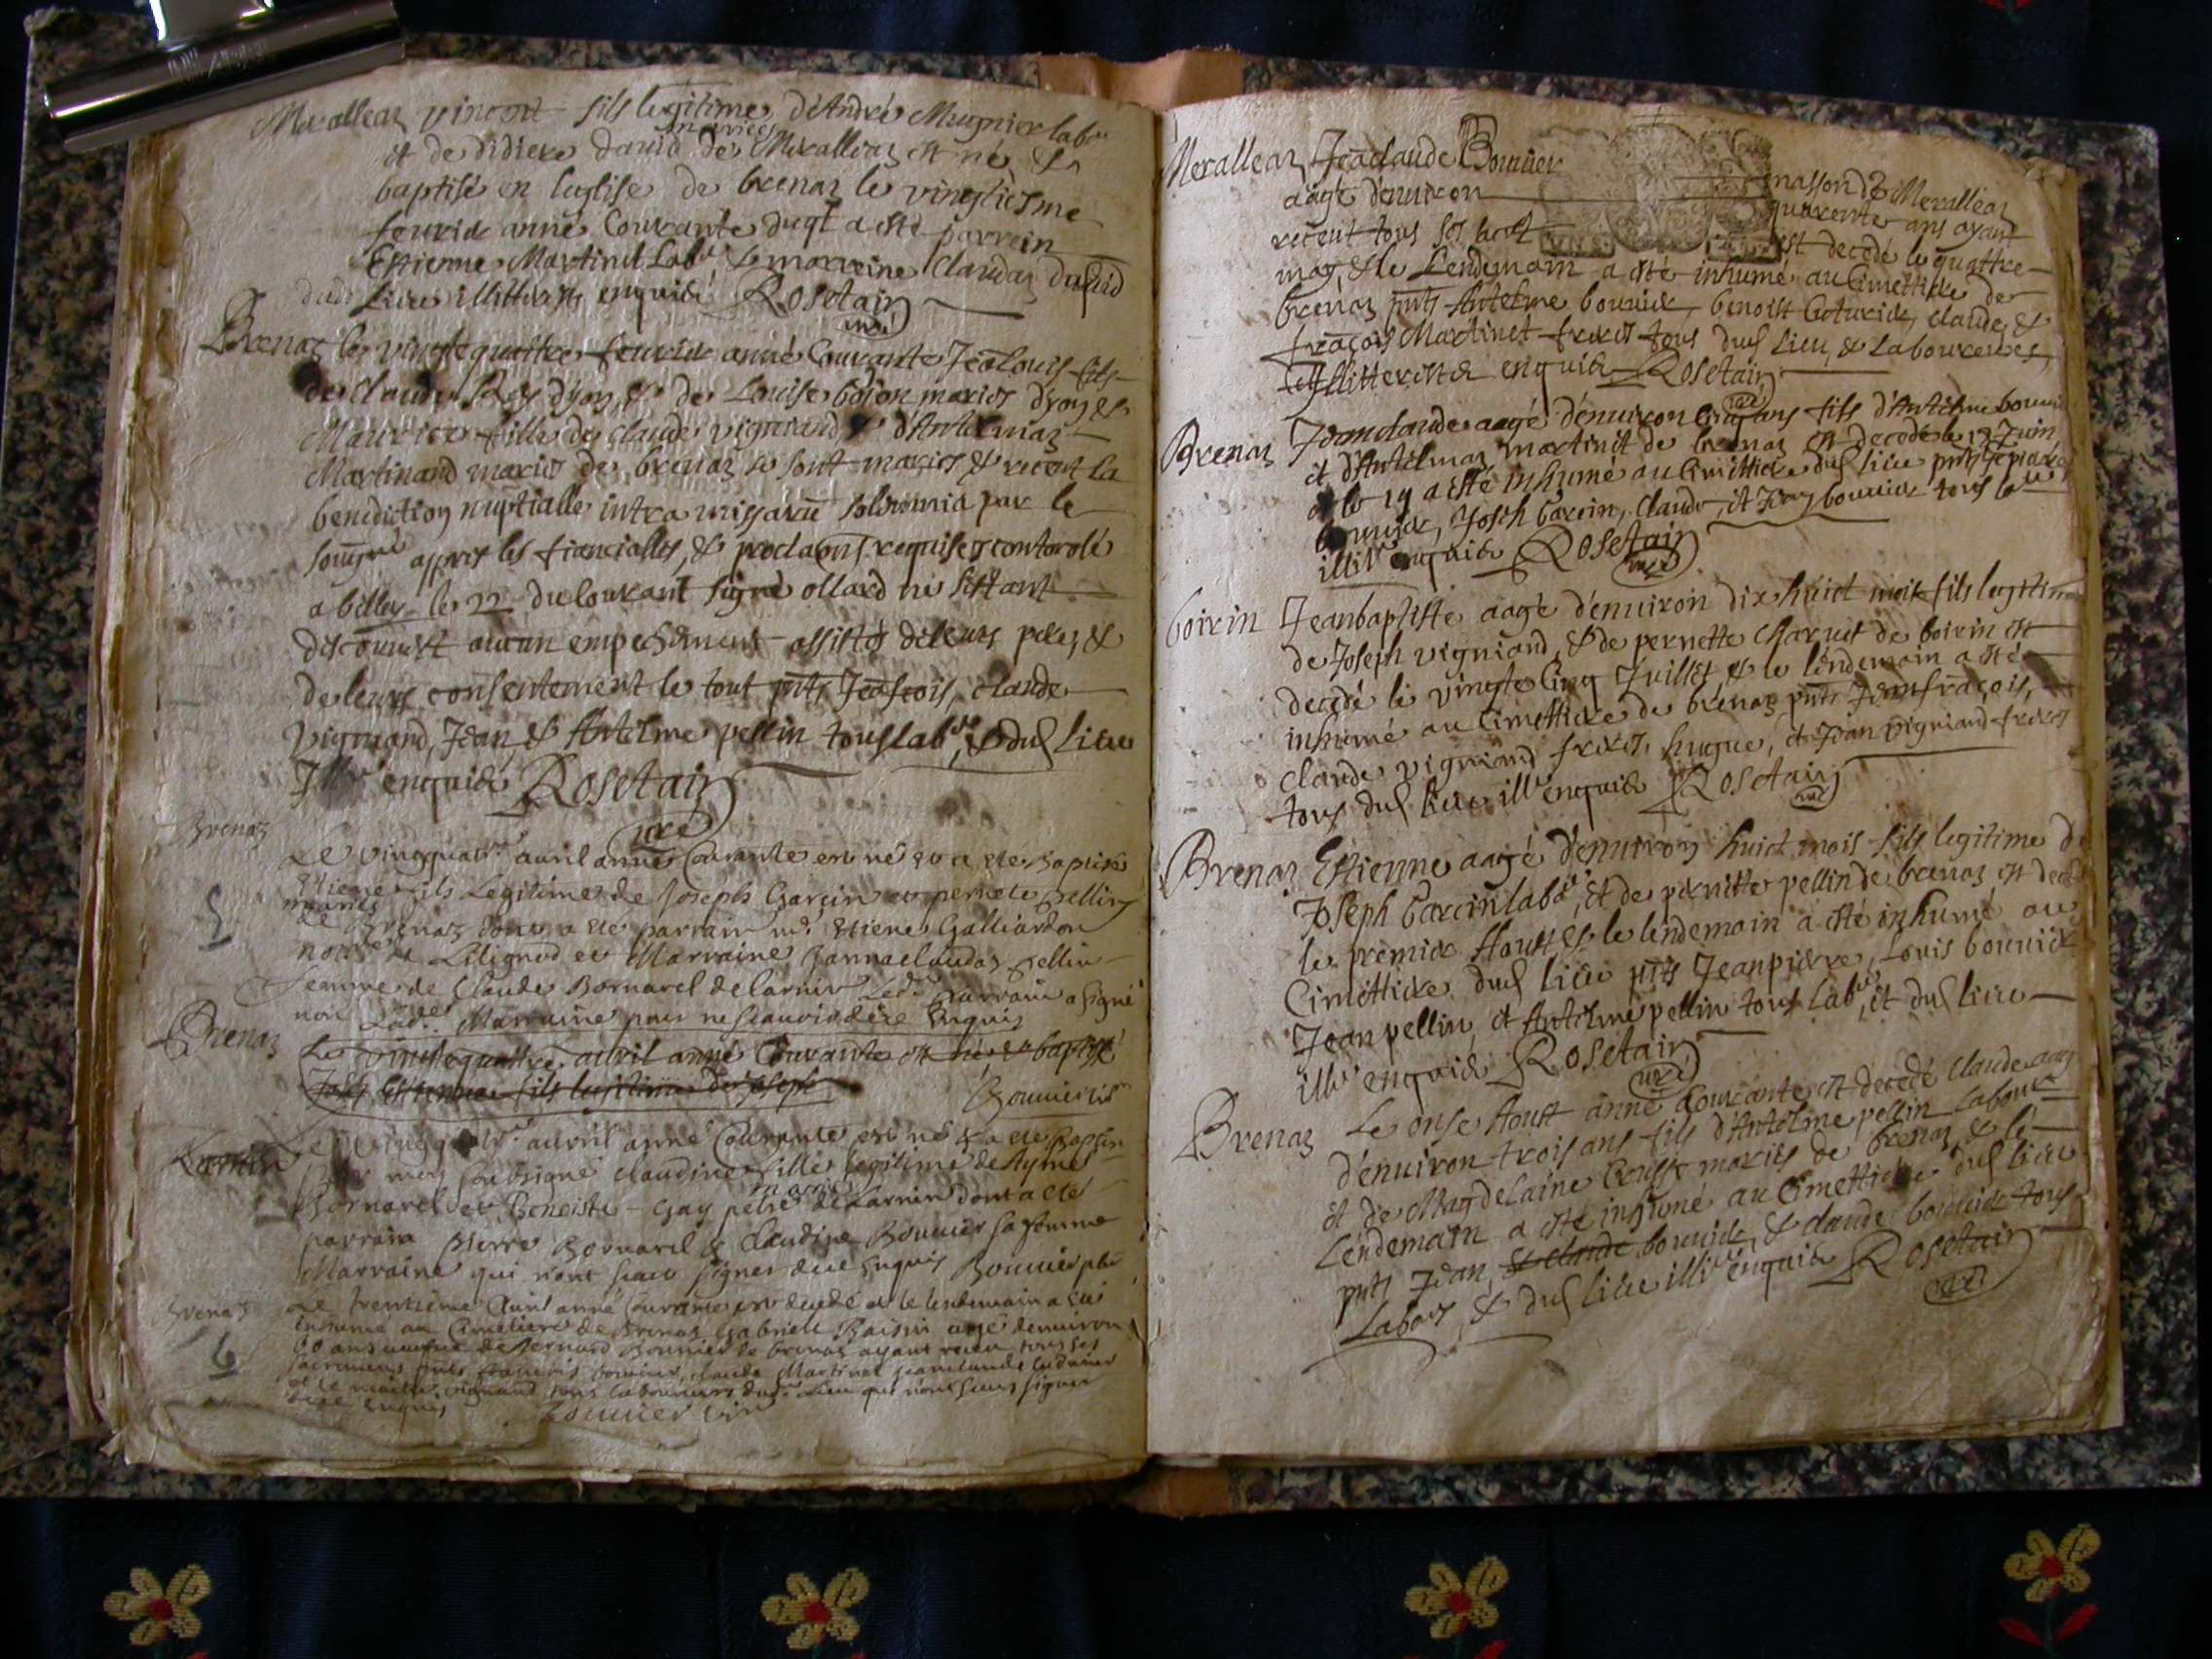 Meralleaz vincent fils legitime d'André Mugnier labr
et de didiere dauid mariés de Meralleaz est né &
baptisé en leglise de brenaz le vingtiesme
feurier anné Courante duqt a esté parrein
Estienne Martinet Labr, & marreine Claudaz Dauid
dud Lieu illitterés enquis Rosetain
curé
Brenaz le vingtequattre feurier anné Courante Jeālouis fils
de claude Rey dyon, & de Louise boson mariés dyon &
Maurice fille de claude vigniand & d'Antelmaz
Martinand mariés de brenaz se sont mariés & receut la
benediction nuptialle intra missarū solemnia par le
sousigné apprés les fiancialles, & proclaōns requises controlé
a belley le 22 du Courant signé ollard ne sestant
descouuert aucun empechement assistés de leurs peres &
de leurs consentement le tout pnts Jeāfcois, claude
vigniand, Jean & Antelme pellin tous labrs, & dud Lieu
Illrés enquis Rosetain
curé
Brenaz
Le vingquatre auril anné Courante est né et a ete baptisé
Etiene fils Legitime de Joseph Garcin et pernete pellin
mariés de Brenaz dont a ete parrain mr Etiene Galliardon
notre de Lilignod et Marraine Jannaclaudaz pellin
femme de Claude Bornarel de Larnin Ledt parrain a signé
non Ladte Marraine pour ne scauoir dere Enquis
Brenaz
Le vingtequattre auril anné Courante est né & baptisé
Estienne fils legitime de joseph
Bouuier vire
Larnin
Le vingquatre auril anné Courante est né & a ete Baptisé
par moy soubsigné claudine fille legitime de Aymé
Bornarel et Benoiste Gay mariés de Larnin dont a eté
parrain pierre Bornarel & Claudine Bouuier sa femme
Marraine qui n'ont sceu signer dere Enquis Bouuier pbr
Brenaz
Le trentieme Auril anné Courante est decedé et le lendemain a eté
inhumé au Cimetiere de Brenaz Gabriele Baisin agé denuiron
60 ans ueufue de Bernard Bonnier de brenaz ayant receu tous ses
sacremens pnts francois bouuier, claude Martinet jeanclaude
vigniand tous laboureurs dudt Lieu qui n'ont sceu signer
dere Enquis Bouuier vire
6
Meralleaz Jeāclaude Bouuier masson de Meralleaz
aagé denuiron quarente ans ayant
receut tous ses sacts est decedé le quattre
may & le Lendemain a esté inhumé au Cimettiere de
brenaz pnts Antelme bouuier, benoist Coturier, claude &
frāçois Martinet freres tous dud Lieu & Laboureures
illitterés enquis Rosetain
curé
Brenaz Jeanclaude aagé d'enuiron Cinq ans fils d'Antelme bouuier
et d'Antelmaz martinet de brenaz est decedé le 13 Juin
& le 14 a esté inhumé au Cimettiere dud lieu pnts Jeāpierre
bouuier, Joseph Garcin, claude, et Jean bouuier tous labrs
illitrés enquis Rosetain
curé
boirin Jeanbaptiste aagé d'enuiron dix huict mois fils legitime
de Joseph vigniand, & de pernette Charuet de boirin est
decedé le vingte Cinq Juillet, & le lendemain a esté
inhumé au Cimettiere de brénaz pnts Jeanfrāçois,
claude vigniand freres, hugue, et Jean vigniand freres
tous dud lieu illrés enquis Rosetain
curé
Brenaz Estienne aagé d'enuiron huict mois fils legitime de
Joseph Garcin labr, et de pernette pellin de brenaz est decedé
le premier Aoust, & le lendemain a esté inhumé au
Cimettiere dud lieu pnts Jeanpierre, Louis bouuier
Jean pellin, et Antelme pellin tous labrs, et dud lieu
illrés enquis Rosetain
curé
Brenaz Le onse Aoust anné Courante est decedé claude aagé
d'enuiron trois ans fils d'Antelme pellin Labour
et de Magdelaine mariés de brenaz, & le
Lendemain a esté inhumé au Cimettiere dud lieu
pnts Jean, & claude bouuier, & claude bouuier tous
Labors & dud lieu illrés enquis Rosetain
curé